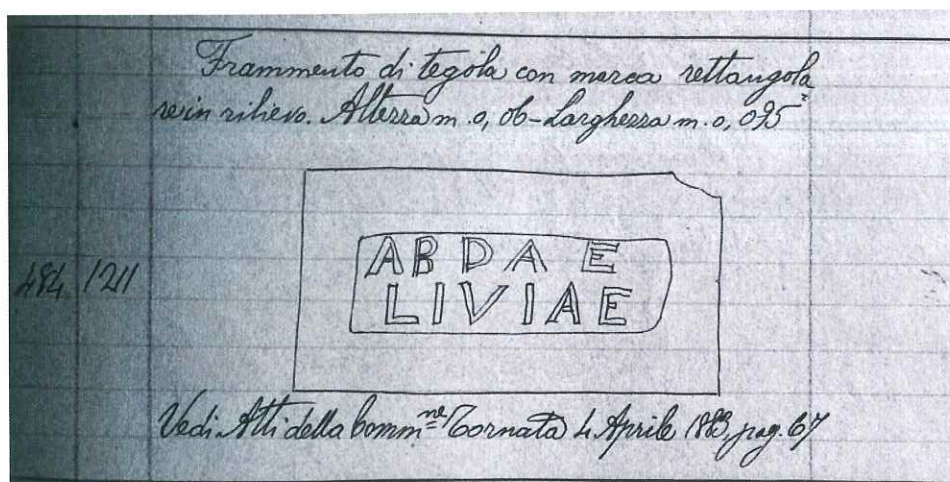 Frammento di tegola con marca rettangola
re in rilievo. Altezza m. 0,06 - Larghezza m. 0,095
ABDAE
LIVIAE
484 1211
Vedi Atti della Comm.ne Tornata 4 Aprile 1883, pag. 67